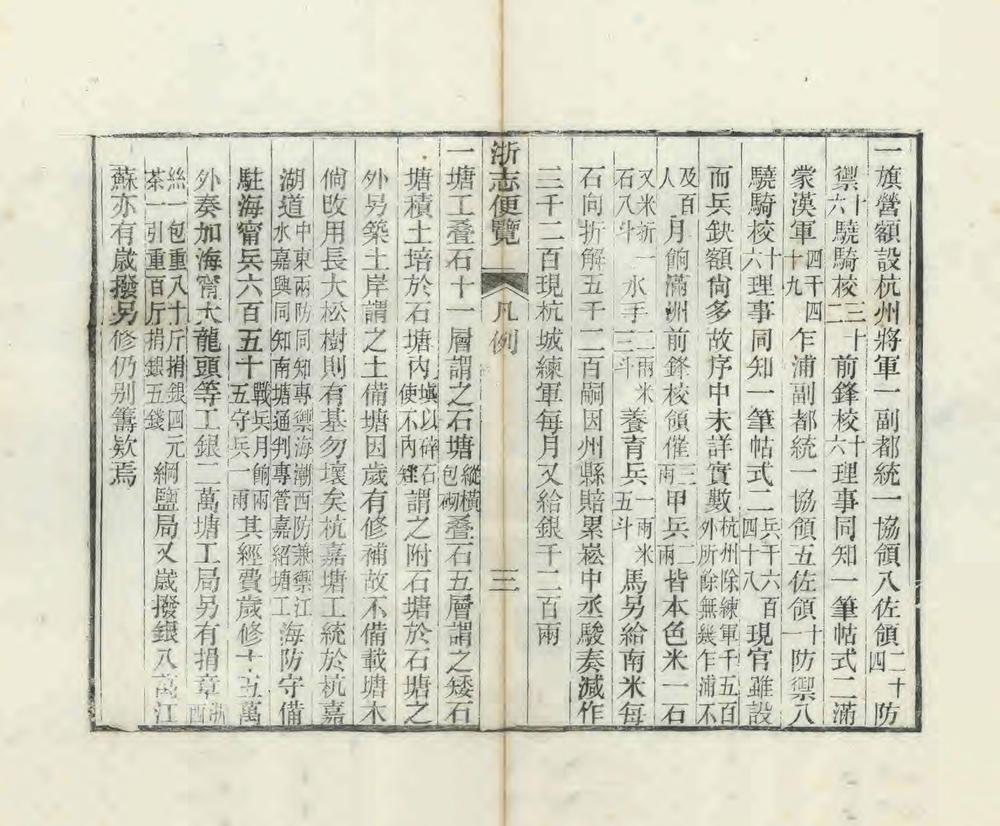 一旗營額設杭州將軍一副都統一協領八佐領二十四防
禦十六驍騎校三十二前鋒校十六理事同知一筆帖式二滿
蒙漢軍四千四十九乍浦副都統一協領五佐領十一防禦八
驍騎校十六理事同知一筆帖式二兵千六百四十八現官雖設
而兵缺額尙多故序中未詳實數杭州除練軍千五百外所餘無幾乍浦不
及百人月餉滿洲前鋒校領催三兩甲兵二兩皆本色米一石
又米折一石八斗水手二兩米三斗養育兵一兩米五斗馬另給南米每
石向折解五千二百嗣因州縣賠累崧中丞駿奏減作
三千二百現杭城練軍每月又給銀千二百兩
浙志便覽 凡例 三
一塘工叠石十一層謂之石塘縱橫包砌叠石五層謂之矮石
塘積土培於石塘內塡以碎石使不內矬謂之附石塘於石塘之
外另築土岸謂之土備塘因歲有修補故不備載塘木
倘改用長大松樹則有基勿壞矣杭嘉塘工統於杭嘉
湖道中東兩防同知專禦海潮西防兼禦江水嘉興同知南塘通判專管嘉紹塘工海防守備
駐海甯兵六百五十戰兵月餉兩五守兵一兩其經費歲修十五萬
外奏加海甯大龍頭等工銀二萬塘工局另有捐章浙西
絲一包重八十斤捐銀四元茶一引重百斤捐銀五錢綱鹽局又歲撥銀八萬江
蘇亦有歲撥另修仍別籌欵焉